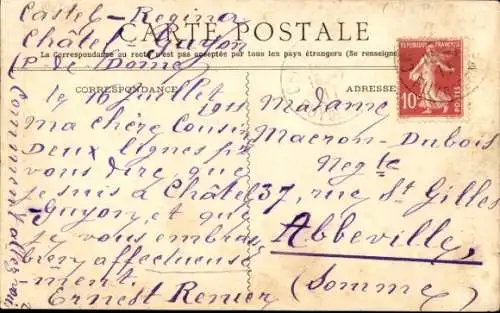 Castel-Regina
Châtel-Guyon
(P-de-Dome)
CARTE POSTALE
La Correspondance au recto n'est pas acceptée par tous les pays étrangers (Se renseigner
CORRESPONDANCE
le 16 Juillet 1911
Ma chère Cousine
Deux lignes pr
vous dire que
je suis à Châtel
-Guyon, et que
je vous embrasse
bien affectueuse
ment.
Ernest Renier
Comment allez-vous
ADRESSE
Madame
Macron-Dubois
Negte
37, rue St Gilles
Abbeville,
(Somme)
REPUBLIQUE FRANÇAISE
10
POSTES